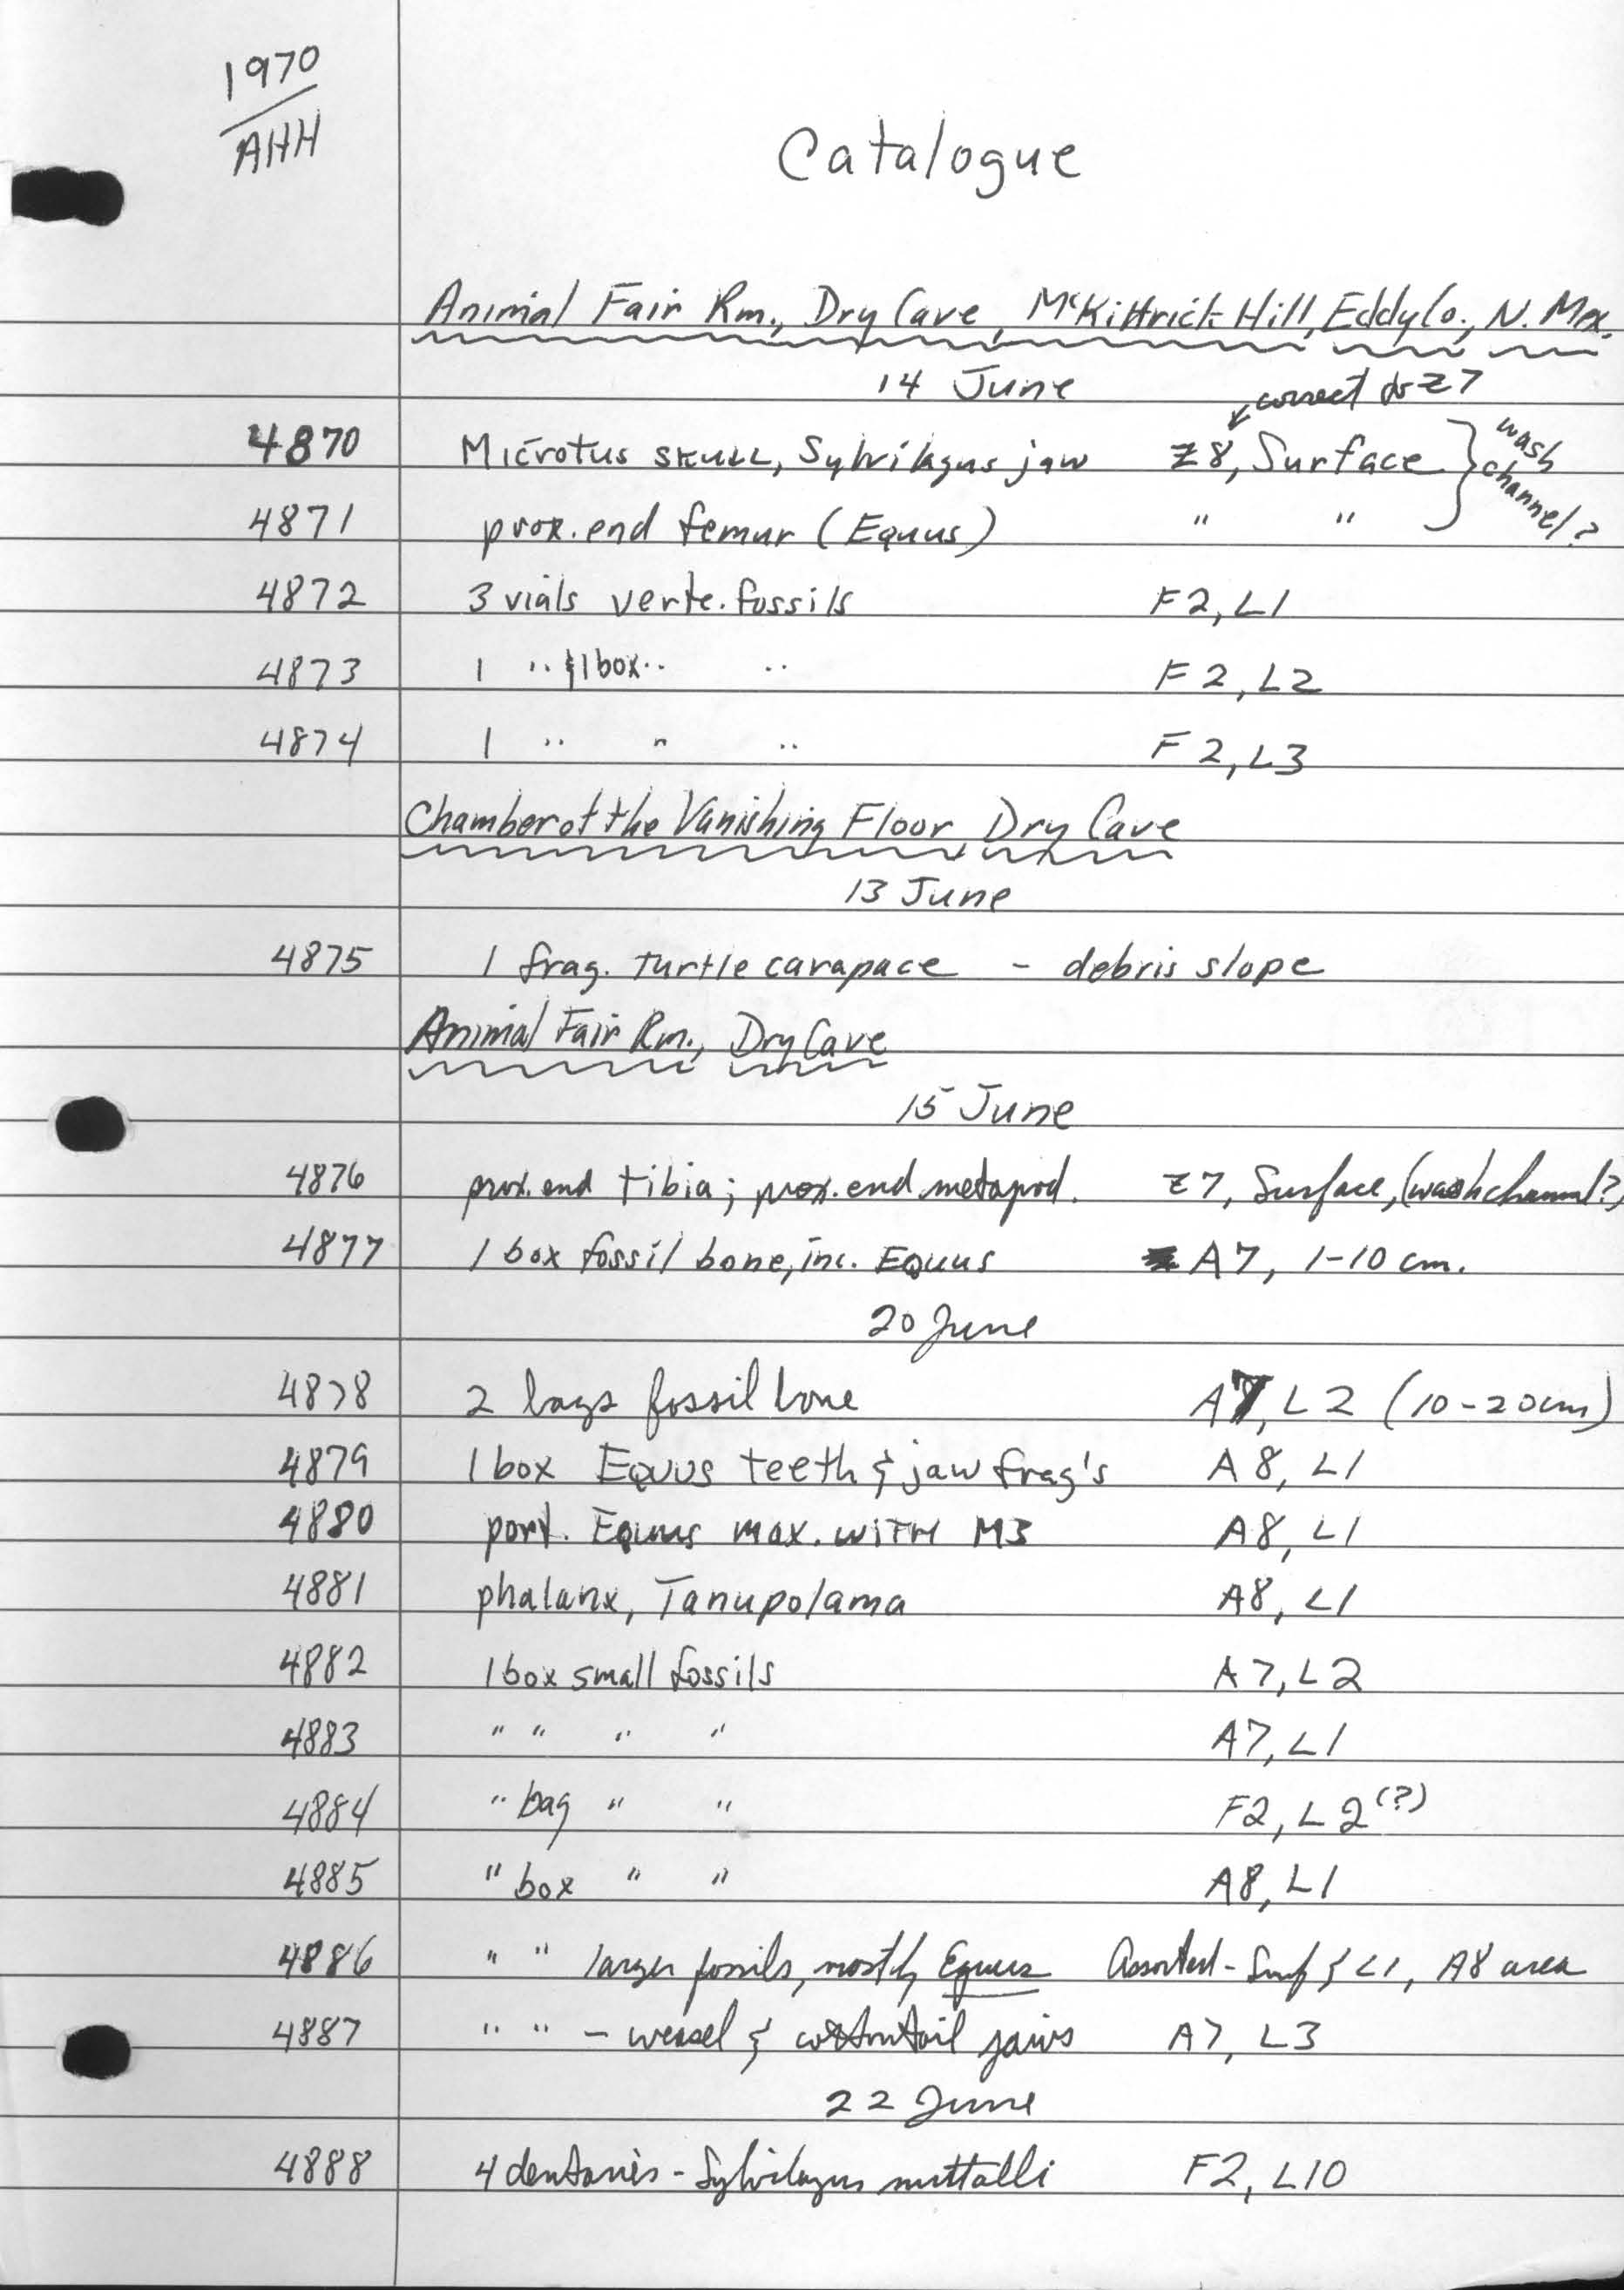 1970
AHH
Catalogue
Animal Fair Rm., Dry Cave, McKittrick Hill, Eddy Co., N. Mex.
14 June
correct to Z7
4870 Microtus skull, Sylvilagus jaw Z8, Surface } wash channel?
4871 prox. end femur (Equus) " "
4872 3 vials verte. fossils F2, L1
4873 1 " & 1 box " " F2, L2
4874 1 " " " F2, L3
Chamber of the Vanishing Floor, Dry Cave
13 June
4875 1 frag. turtle carapace - debris slope
Animal Fair Rm., Dry Cave
15 June
4876 prox. end tibia; prox. end metapod. Z7, Surface, (wash channel?)
4877 1 box fossil bone, inc. Equus A7, 1-10 cm.
20 June
4878 2 bags fossil bone A7, L2 (10-20cm)
4879 1 box Equus teeth & jaw frag's A8, L1
4880 port. Equus max. with M3 A8, L1
4881 phalanx, Tanupolama A8, L1
4882 1 box small fossils A7, L2
4883 " " " " A7, L1
4884 " bag " " F2, L2 (?)
4885 " box " " A8, L1
4886 " " larger fossils, mostly Equus Assorted - Surf & L1, A8 area
4887 " " - weasel & cottontail jaws A7, L3
22 June
4888 4 dentaries - Sylvilagus nuttalli F2, L10